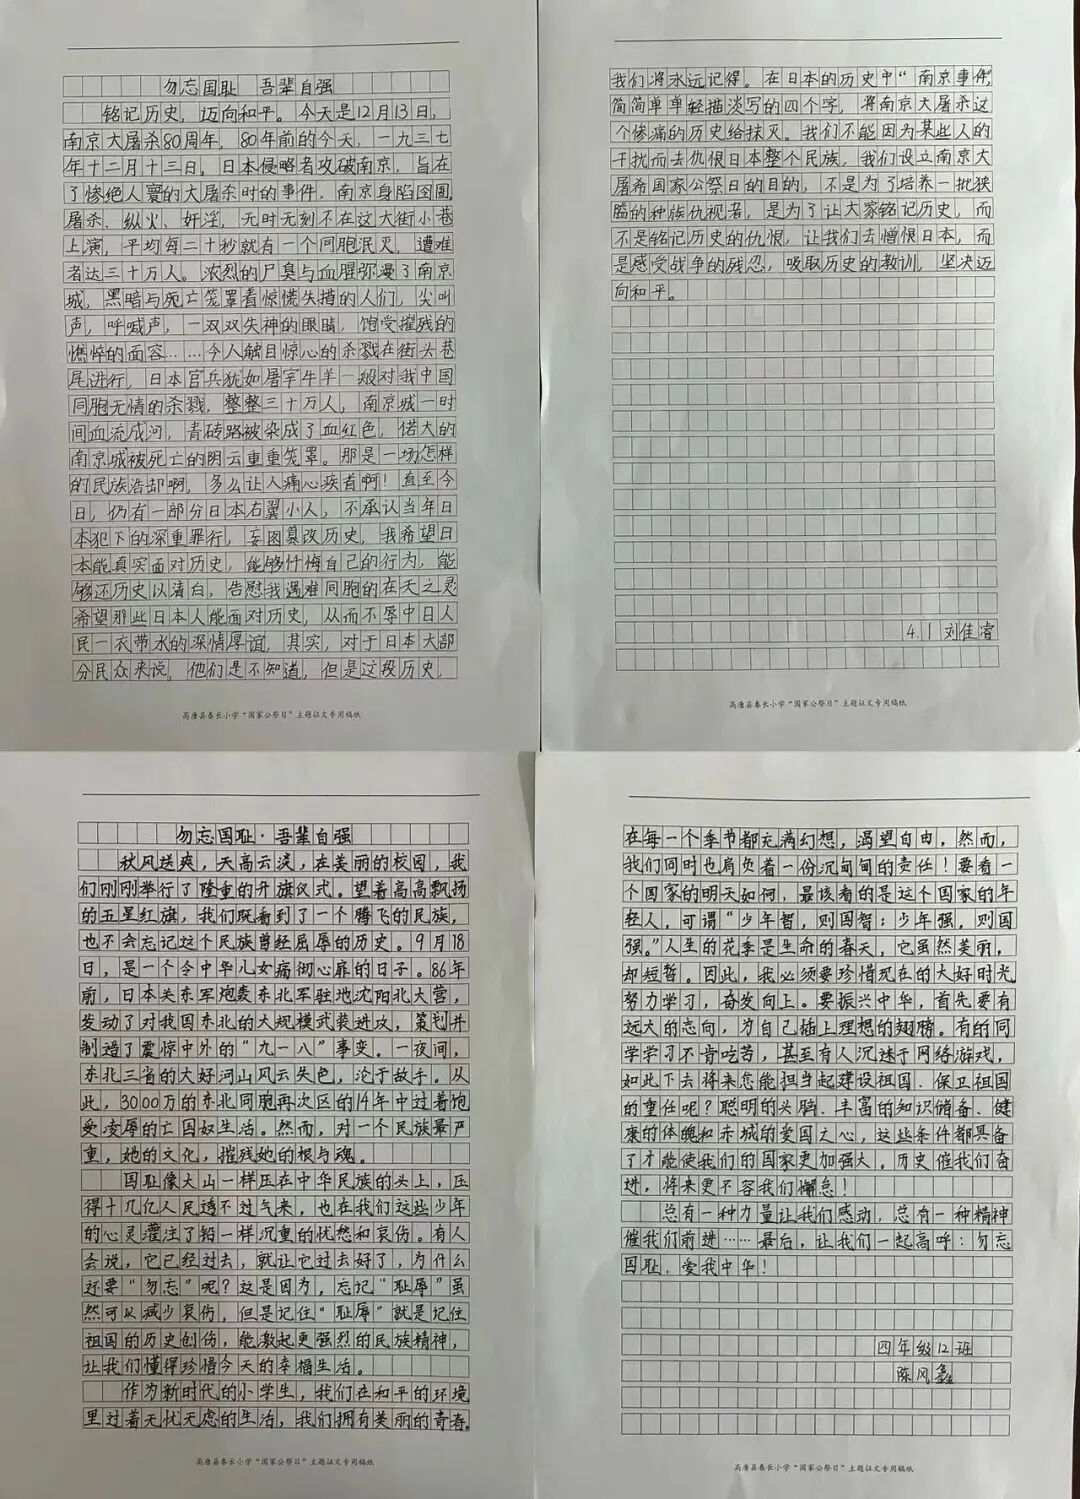 勿忘国耻 吾辈自强
铭记历史，迈向和平。今天是12月13日，
南京大屠杀80周年，80年前的今天，一九三七
年十二月十三日。日本侵略者攻破南京，旨在
了惨绝人寰的大屠杀时的事件，南京身陷囹圄，
屠杀、纵火、奸淫，无时无刻不在这大街小巷
上演，平均每二十秒就有一个同胞泯灭，遭难
者达三十万人。浓烈的尸臭与血腥弥漫了南京
城，黑暗与死亡笼罩着惊慌失措的人们，尖叫
声，呼喊声，一双双失神的眼睛，饱受摧残的
憔悴的面容……今人触目惊心的杀戮在街头巷
尾进行，日本官兵犹如屠宰牛羊一般对我中国
同胞无情的杀戮，整整三十万人，南京城一时
间血流成河，青砖路被染成了血红色，偌大的
南京城被死亡的阴云重重笼罩。那是一场怎样
的民族浩劫啊，多么让人痛心疾首啊！直至今
日，仍有一部分日本右翼小人，不承认当年日
本犯下的深重罪行，妄图篡改历史，我希望日
本能真实面对历史，能够忏悔自己的行为，能
够还历史以清白，告慰我遇难同胞的在天之灵
希望那些日本人能面对历史，从而不辱中日人
民一衣带水的深情厚谊，其实，对于日本大部
分民众来说，他们是不知道，但是这段历史，
高唐县春长小学“国家公祭日”主题征文专用稿纸
我们将永远记得。在日本的历史中“南京事件”
简简单单轻描淡写的四个字，将南京大屠杀这
个惨痛的历史给抹灭。我们不能因为某些人的
干扰而去仇恨日本整个民族，我们设立南京大
屠希国家公祭日的目的，不是为了培养一批狭
隘的种族仇视者，是为了让大家铭记历史，而
不是铭记历史的仇恨，让我们去憎恨日本，而
是感受战争的残忍，吸取历史的教训，坚决迈
向和平。
4.1 刘佳睿
高唐县春长小学“国家公祭日”主题征文专用稿纸
勿忘国耻·吾辈自强
秋风送爽，天高云淡，在美丽的校园，我
们刚刚举行了隆重的升旗仪式。望着高高飘扬
的五星红旗，我们既看到了一个腾飞的民族，
也不会忘记这个民族曾经屈辱的历史。9月18
日，是一个令中华儿女痛彻心扉的日子。86年
前，日本关东军炮轰东北军驻地沈阳北大营，
发动了对我国东北的大规模武装进攻，策划并
制造了震惊中外的“九一八”事变。一夜间，
东北三省的大好河山风云失色，沦于敌手。从
此，3000万的东北同胞再次区的14年中过着饱
受凌辱的亡国奴生活。然而，对一个民族最严
重，她的文化，摧残她的根与魂。
国耻像大山一样压在中华民族的头上，压
得十几亿人民透不过气来，也在我们这些少年
的心灵灌注了铅一样沉重的忧愁和哀伤。有人
会说，它已经过去，就让它过去好了，为什么
还要“勿忘”呢？这是因为，忘记“耻辱”虽
然可以减少哀伤，但是记住“耻辱”就是记住
祖国的历史创伤，能激起更强烈的民族精神，
让我们懂得珍惜今天的幸福生活。
作为新时代的小学生，我们在和平的环境
里过着无忧无虑的生活，我们拥有美丽的青春。
高唐县春长小学“国家公祭日”主题征文专用稿纸
在每一个季节都充满幻想，渴望自由，然而，
我们同时也肩负着一份沉甸甸的责任！要看一
个国家的明天如何，最该看的是这个国家的年
轻人，可谓“少年智，则国智；少年强，则国
强。”人生的花季是生命的春天，它虽然美丽，
却短暂。因此，我必须要珍惜现在的大好时光
努力学习，奋发向上。要振兴中华，首先要有
远大的志向，为自己插上理想的翅膀。有的同
学学习不肯吃苦，甚至有人沉迷于网络游戏，
如此下去将来怎能担当起建设祖国、保卫祖国
的重任呢？聪明的头脑、丰富的知识储备、健
康的体魄和赤城的爱国之心，这些条件都具备
了才能使我们的国家更加强大。历史催我们奋
进，将来更不容我们懈怠！
总有一种力量让我们感动，总有一种精神
催我们前进……最后，让我们一起高呼：勿忘
国耻，爱我中华！
四年级12班
陈风鑫
高唐县春长小学“国家公祭日”主题征文专用稿纸